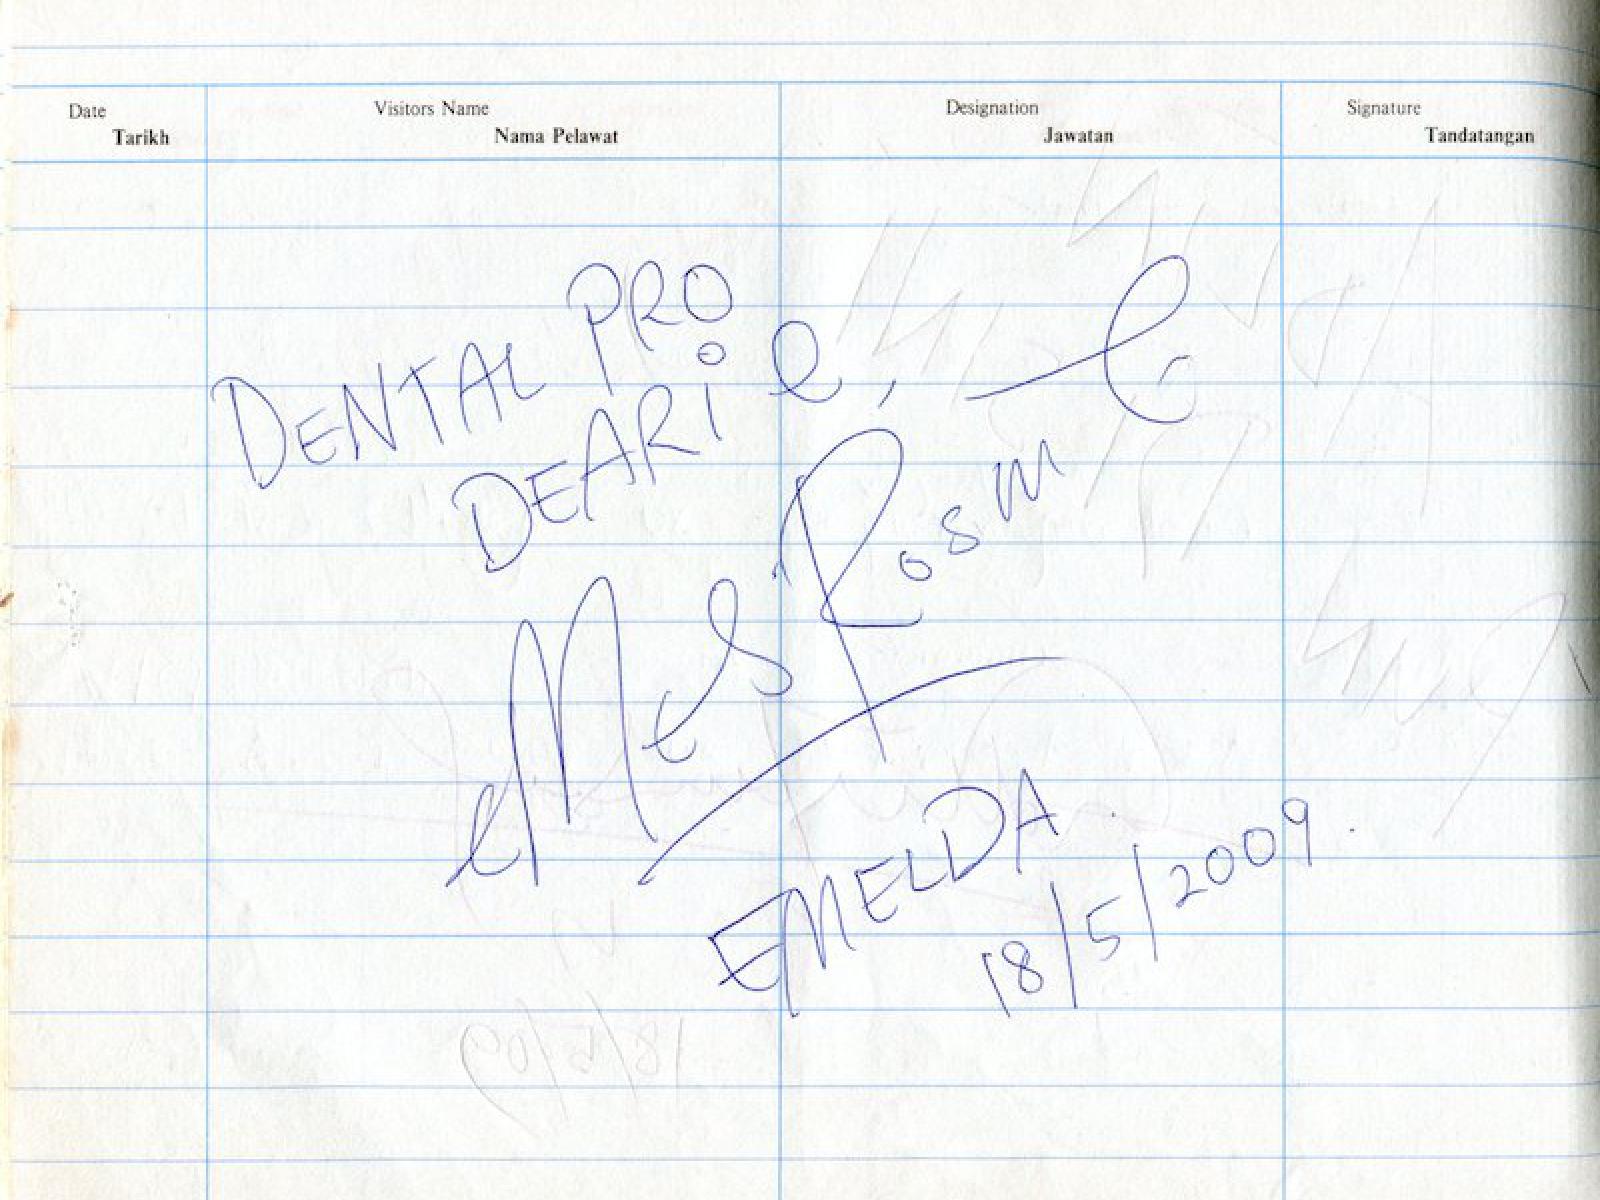 Date Visitors Name Designation Signature
Tarikh Nama Pelawat Jawatan Tandatangan
DENTAL PRO
DEARie,
EMELDA
18/5/2009.
18/5/09